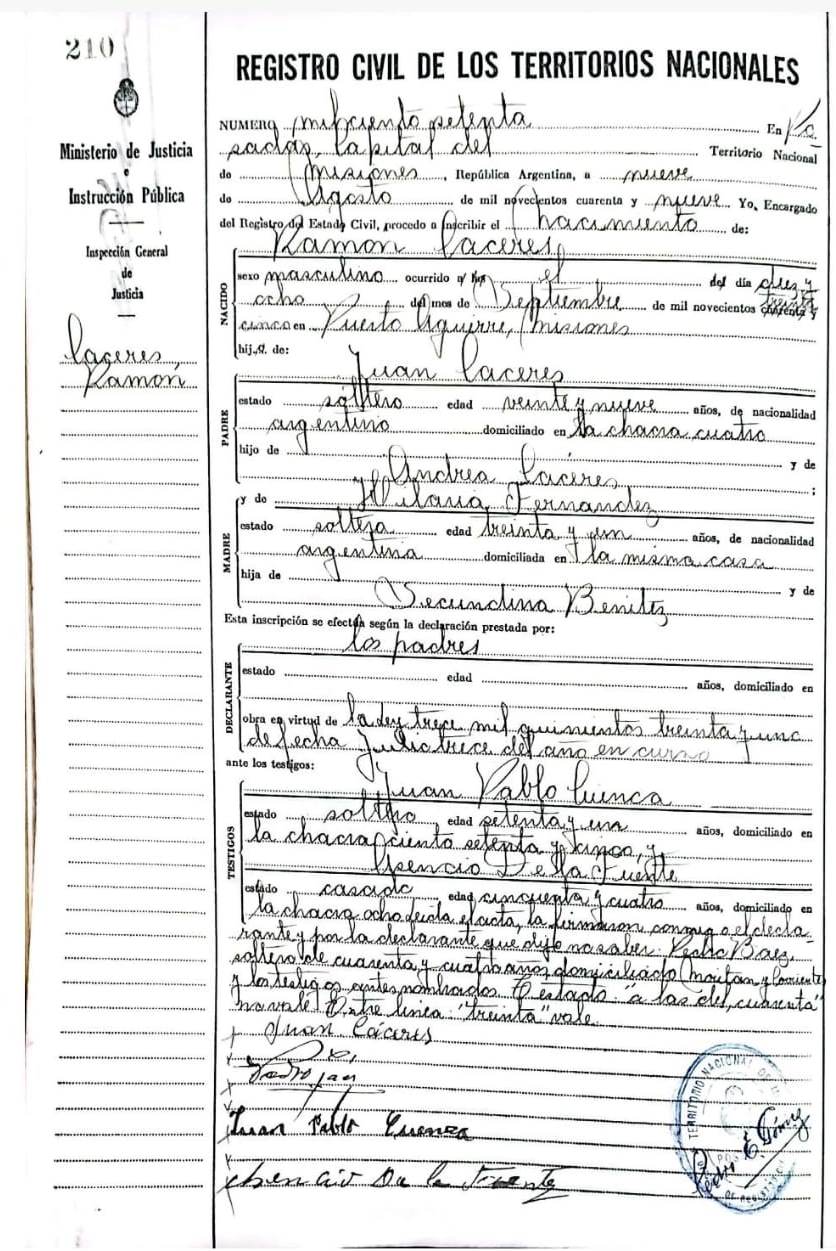 210
Ministerio de Justicia
e
Instrucción Pública
Inspección General
de
Justicia
Caceres,
Ramón
REGISTRO CIVIL DE LOS TERRITORIOS NACIONALES
NUMERO mil ciento setenta En Po
sadas, Capital del Territorio Nacional
de Misiones, República Argentina, a nueve
de Agosto de mil novecientos cuarenta y nueve Yo, Encargado
del Registro del Estado Civil, procedo a inscribir el nacimiento de:
Ramón Caceres,
NACIDO
sexo masculino ocurrido a las el del día diez y
ocho del mes de Septiembre de mil novecientos cuarenta y treinta y
cinco en Puerto Aguirre, Misiones
hij.. de:
Juan Caceres
PADRE
estado soltero edad veinte y nueve años, de nacionalidad
argentino domiciliado en la chacra cuatro
hijo de y de
Andrea Caceres ;
y de Hilaria Fernandez
MADRE
estado soltera edad treinta y un años, de nacionalidad
argentina domiciliada en la misma casa
hija de y de
Secundina Benitez
Esta inscripción se efectúa según la declaración prestada por:
los padres
DECLARANTE
estado edad años, domiciliado en
obra en virtud de la Ley trece mil quinientos treinta y uno
de fecha Julio trece del año en curso
ante los testigos:
Juan Pablo Cuenca
TESTIGOS
estado soltero, edad setenta y un años, domiciliado en
la chacra ciento setenta y cinco, y
Asencio De la Fuente
estado casado edad cincuenta y cuatro años, domiciliado en
la chacra ocho leida el acta, la firmaron conmigo el decla
rante y por la declarante que dijo no saber: Pedro Baez,
soltero de cuarenta y cuatro años domiciliado
y los testigos antes nombrados Testado: "a las del, cuarenta"
no vale. Entre linea: "treinta" vale.
Juan Cáceres
Juan Pablo Cuenca
De la Fuente
TERRITORIO NACIONAL DE
Pedro E Gómez